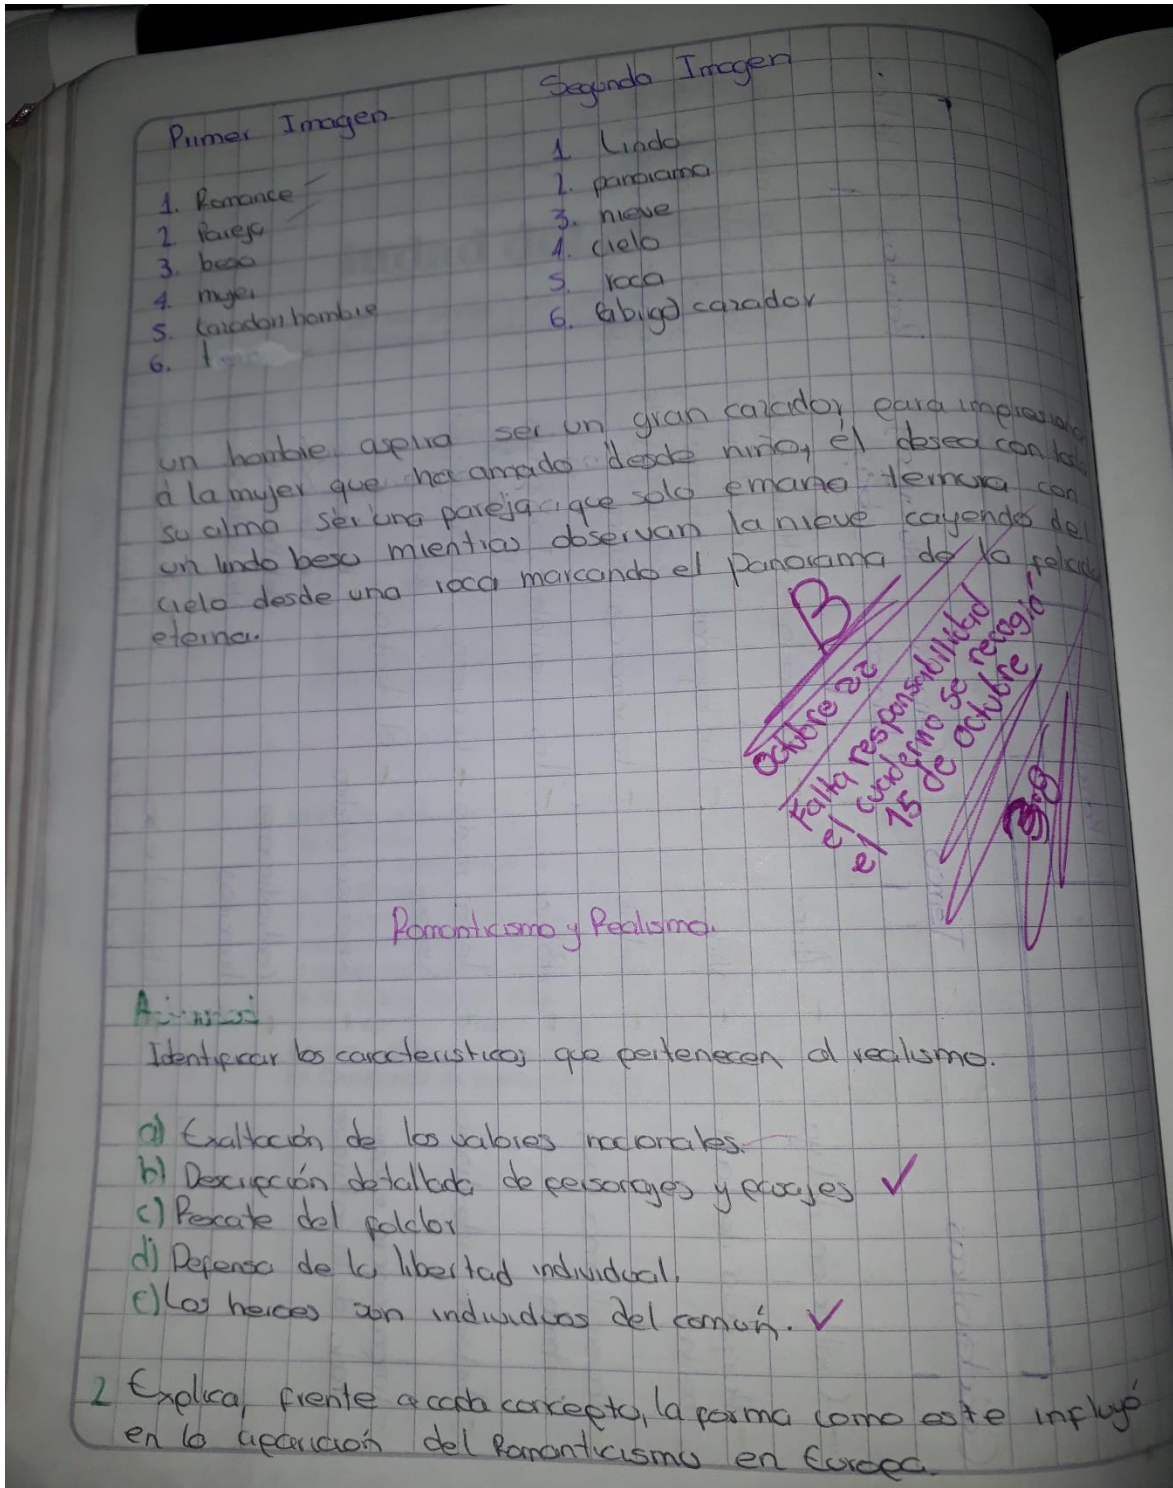 Primer Imagen
1. Romance
2 Pareja
3. beso
4. mujer
5. hombre
6.
Segunda Imagen
1 Lindo
2. panorama
3. nieve
4. cielo
5. roca
6. cazador
un hombre aspira ser un gran cazador para
a la mujer que ha amado desde niño, él desea con
su alma ser una pareja que solo emane ternura con
un lindo beso mientras observan la nieve cayendo del
cielo desde una roca marcando el panorama de la
eterna.
B
Octubre 22
Falta responsabilidad
el cuaderno se recogió
el 15 de Octubre
Romanticismo y Realismo.
Actividad
Identificar las características que pertenecen al realismo.
a) Exaltación de los valores nacionales.
b) Descripción detallada de personajes y paisajes ✓
c) Rescate del folclor
d) Defensa de la libertad individual.
e) Los heroes son individuos del común. ✓
2 Explica, frente a cada concepto, la forma como este influyó
en la aparición del Romanticismo en Europa.